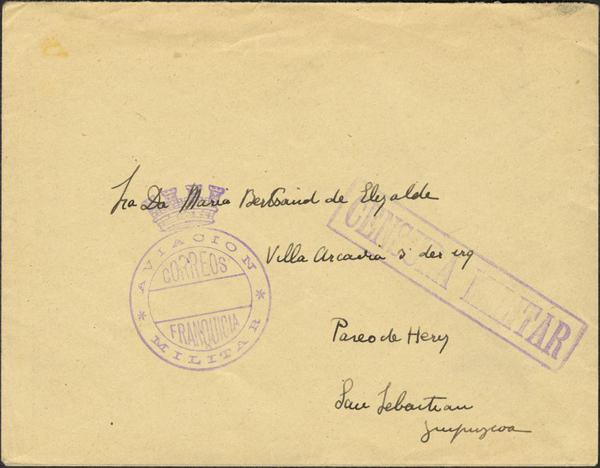 Sra Da Maria Bertrand de Elizalde
Villa Arcadia 3º der izq
Paseo de Hery
San Sebastian
Guipuzcoa
AVIACION
CORREOS
FRANQUICIA
* MILITAR *
CENSURA MILITAR